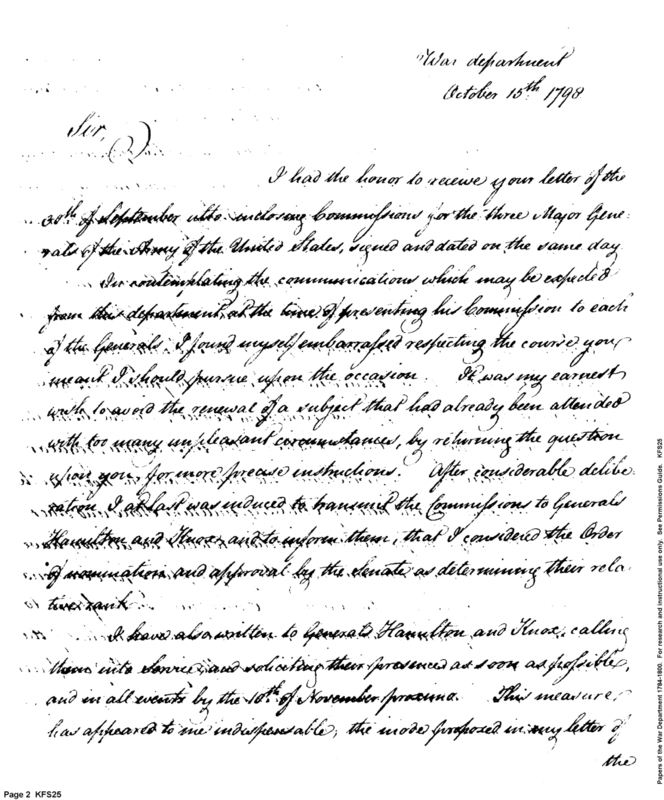 War department
October 15th 1798
Sir,
I had the honor to receive your letter of the
30th of September ulto inclosing Commissions for the three Major Gene-
rals of the Army of the United States, signed and dated on the same day
In contemplating the communications which may be expected
from this department, at the time of presenting his Commission to each
of the Generals. I found myself embarrassed respecting the course you
meant I should pursue upon the occasion. It was my earnest
wish to avoid the renewal of a subject that had already been attended
with too many unpleasant circumstances, by returning the question
upon you, for more precise instructions. After considerable delibe-
ration I at last was induced to transmit the Commissions to Generals
Hamilton and Knox, and to inform them, that I considered the Order
of nomination and approval by the Senate as determining their rela-
tive rank.
I have also written to Generals Hamilton and Knox, calling
them into Service, and soliciting their presence as soon as possible,
and in all events by the 10th of November proximo. This measure
has appeared to me indispensable; the mode proposed in my letter of
the
Page 2 KFS25
Papers of the War Department 1784-1800. For research and instructional use only. See Permissions Guide. KFS25